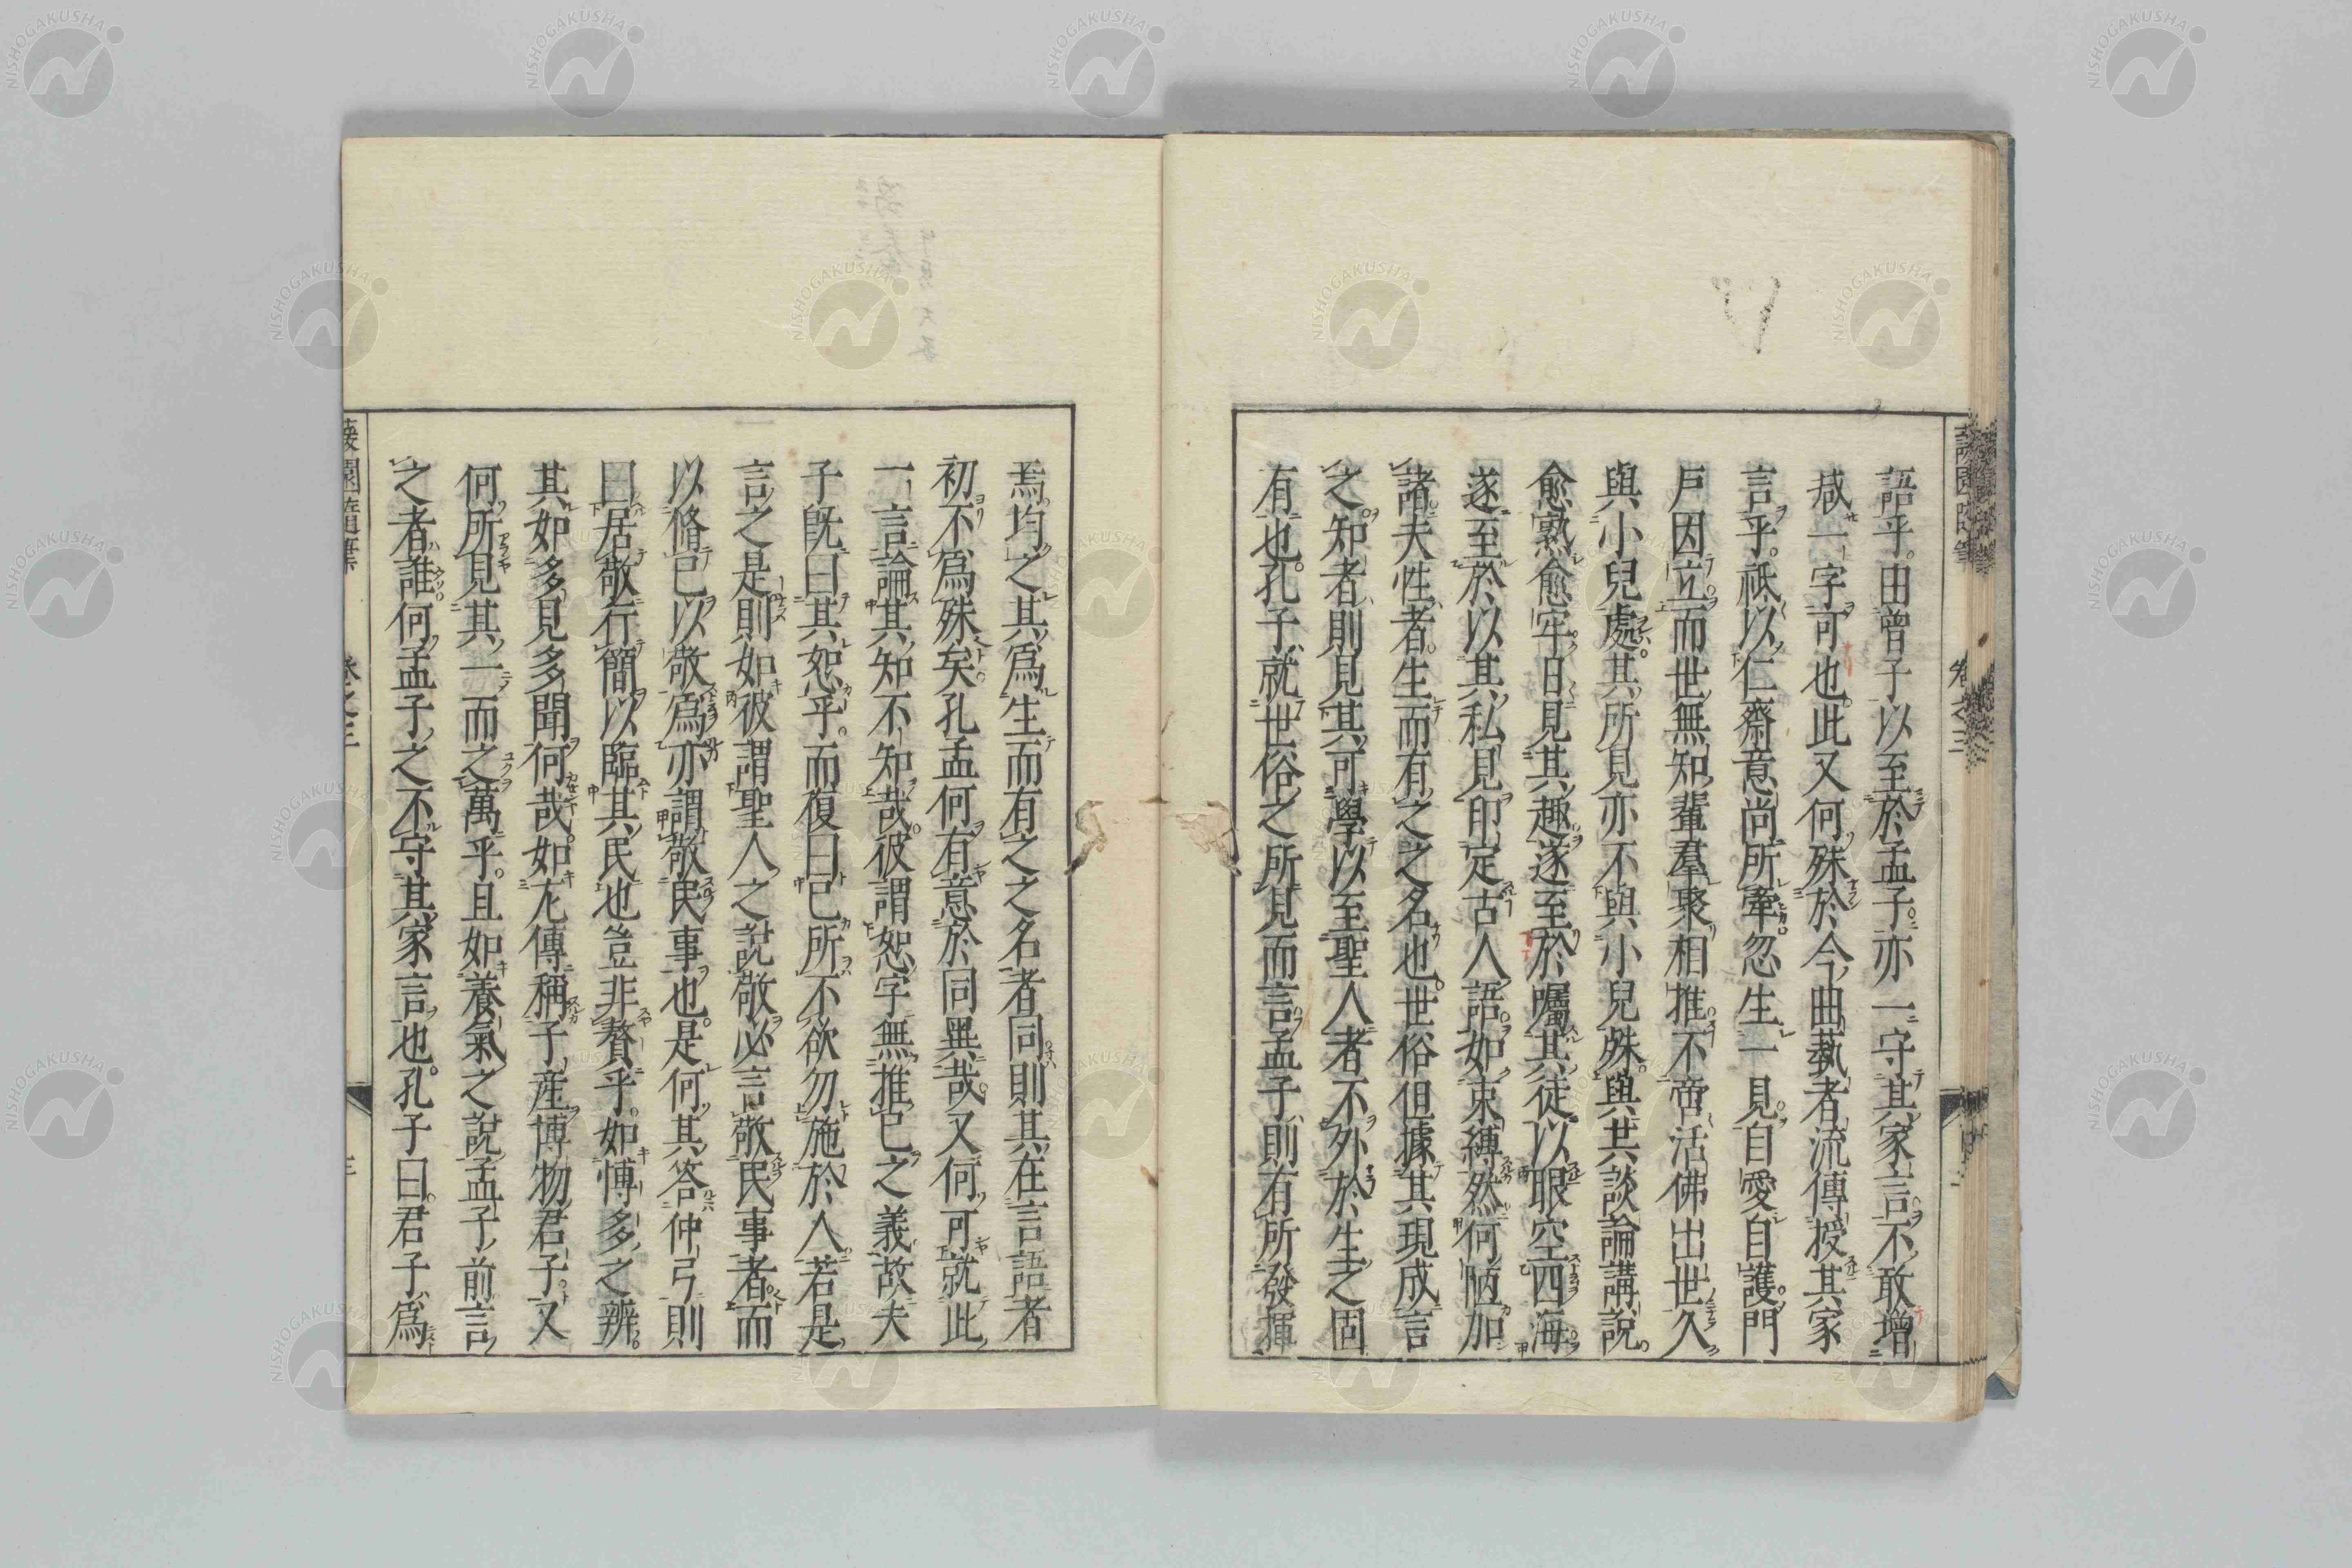 語乎。由曾子以至於孟子。亦一守其家言。不敢增
減一字可也。此又何殊於今曲藝者流傳授其家
言乎。祇以仁齋意尚所牽。忽生一見。自愛自護。門
戸因立。而世無知輩羣聚相推。不啻活佛出世。久
與小兒處。其所見亦不與小兒殊。與其談論講說。
愈熟愈牢。日見其趣。遂至於囑其徒以眼空四海。
遂至於以其私見印定古人語。如束縛然。何陋加
諸。夫性者。生而有之之名也。世俗但據其現成言
之。知者則見其可學以至聖人者不外於生之固
有也。孔子就世俗之所見而言。孟子則有所發揮
蘐園隨筆 卷之三
焉。均之其爲生而有之之名者同。則其在言語者
初不爲殊矣。孔孟何有意於同異哉。又何可就此
一言論其知不知哉。彼謂恕字無推己之義。故夫
子既曰其恕乎。而復曰己所不欲勿施於人。若是
言之是則如彼謂聖人之說敬必言敬民事者。而
以脩己以敬爲亦謂敬民事也。是何其答仲弓則
曰居敬行簡以臨其民也。豈非贅乎。如博多之辨。
其如多見多聞何哉。如左傳稱子產博物君子。又
何所見其一而之萬乎。且如養氣之說。孟子前言
之者誰何。孟子之不守其家言也。孔子曰。君子爲
蘐園隨筆 卷之三 三
NISHOGAKUSHA